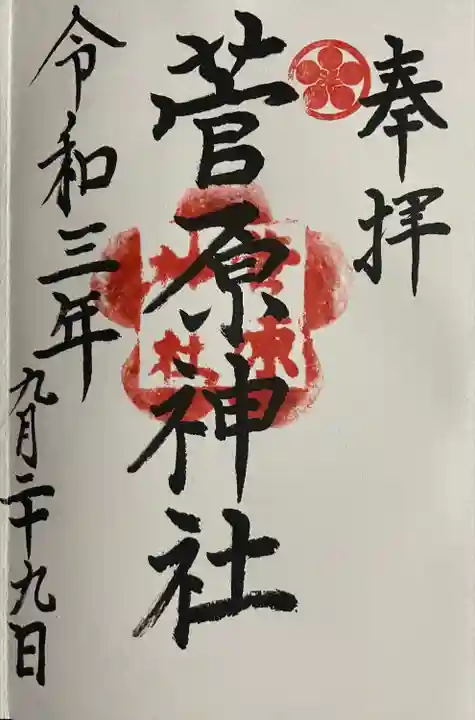 奉拝
菅原神社
菅原
神社
令和三年
九月二十九日